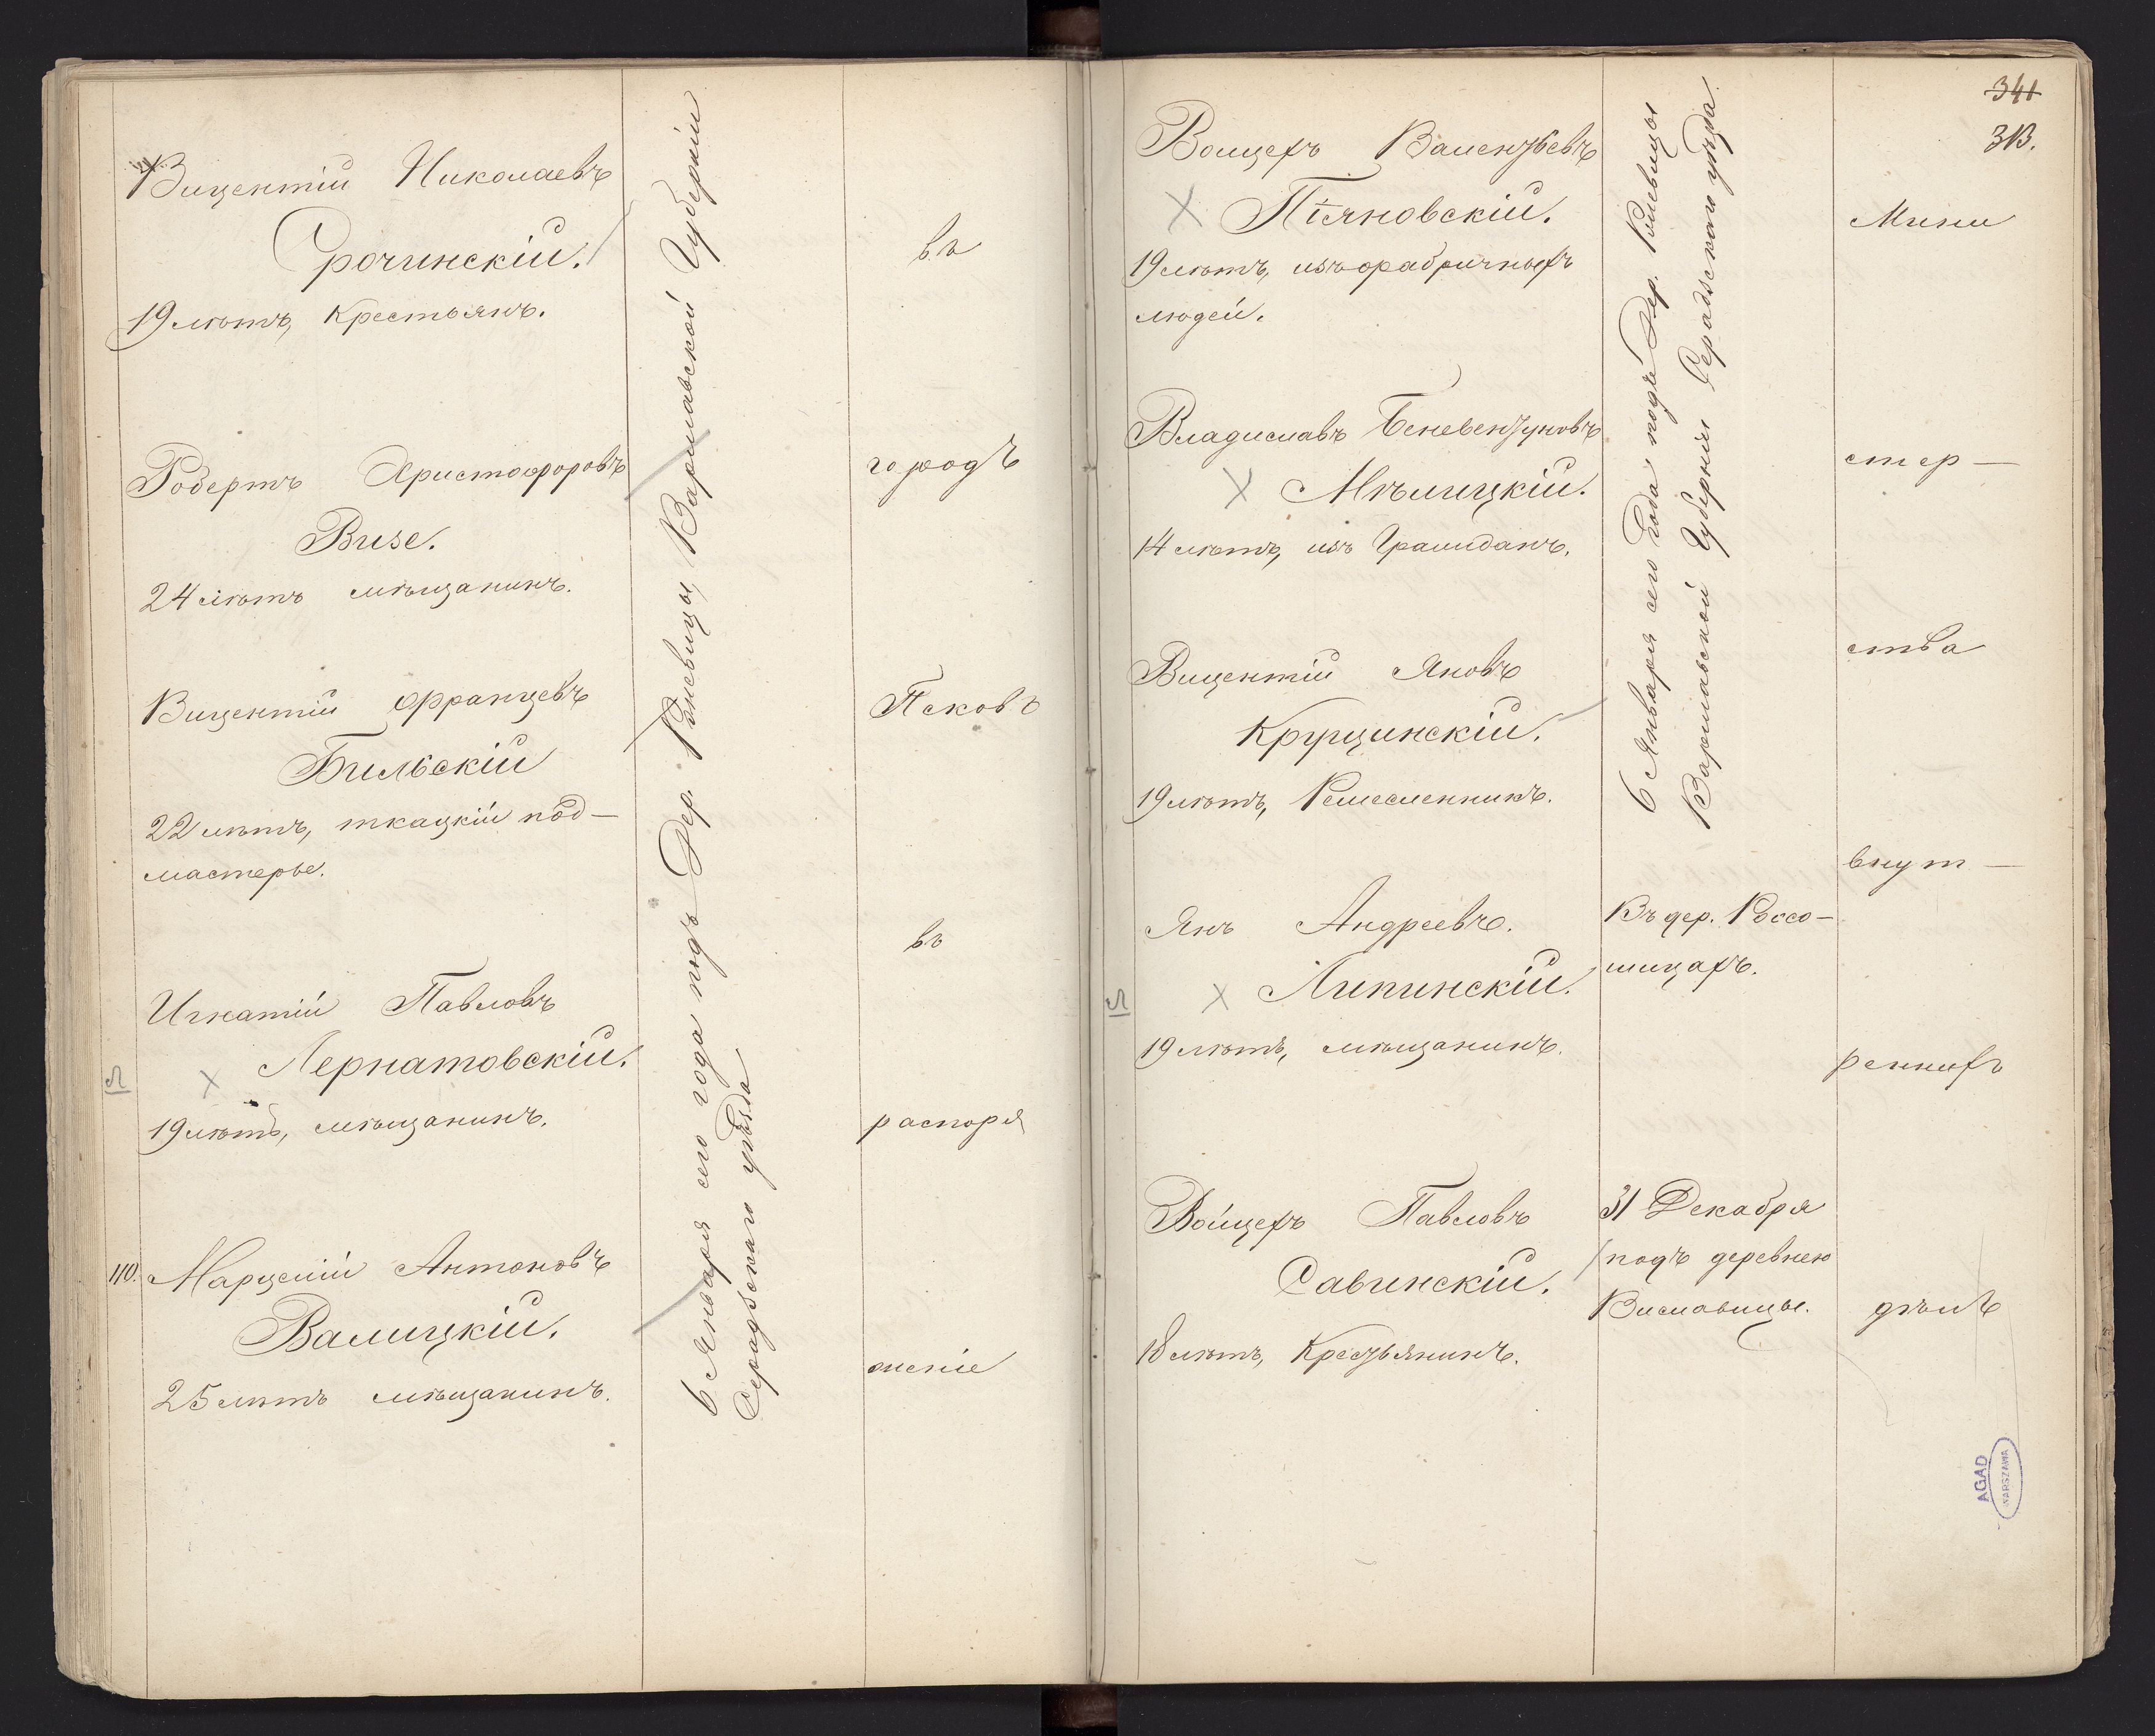 Вицентій Николаевъ
Срочинскій.
19 лѣтъ, крестьянъ.
Робертъ Христофоровъ
Визе.
24 лѣтъ мѣщанинъ.
Вицентій Францевъ
Бильскій
22 лѣтъ, ткацкій под-
мастерье.
Игнатій Павловъ
Лернатовскій.
19 лѣтъ, мѣщанинъ.
110. Марцелій Антоновъ
Валицкій.
25 лѣтъ мѣщанинъ.
6 Января сего года подъ Дер. Варшавской Губерніи
Серадзскаго уѣзда
въ
городъ
Псковъ
въ
распоря
женіе
341
313.
Войцехъ Валентьевъ
Піяновскій.
19 лѣтъ, изъ фабричныхъ
людей.
Владиславъ Беневентуновъ
Мѣлицкій.
14 лѣтъ, изъ Гражданъ.
Вицентій Яновъ
Крущинскій.
19 лѣтъ, Ремесленникъ.
Янъ Андреевъ.
Липинскій.
19 лѣтъ, мѣщанинъ.
Войцехъ Павловъ
Савинскій.
18 лѣтъ, Крестьянинъ.
6 Января сего года подъ Дер.
Варшавской Губерніи Серадзскаго уѣзда.
Въ дер. Россо-
шицахъ.
31 Декабря
подъ деревнею
Виславицы.
Мини
стер-
ства
внут-
реннихъ
дѣлъ
AGAD
WARSZAWA